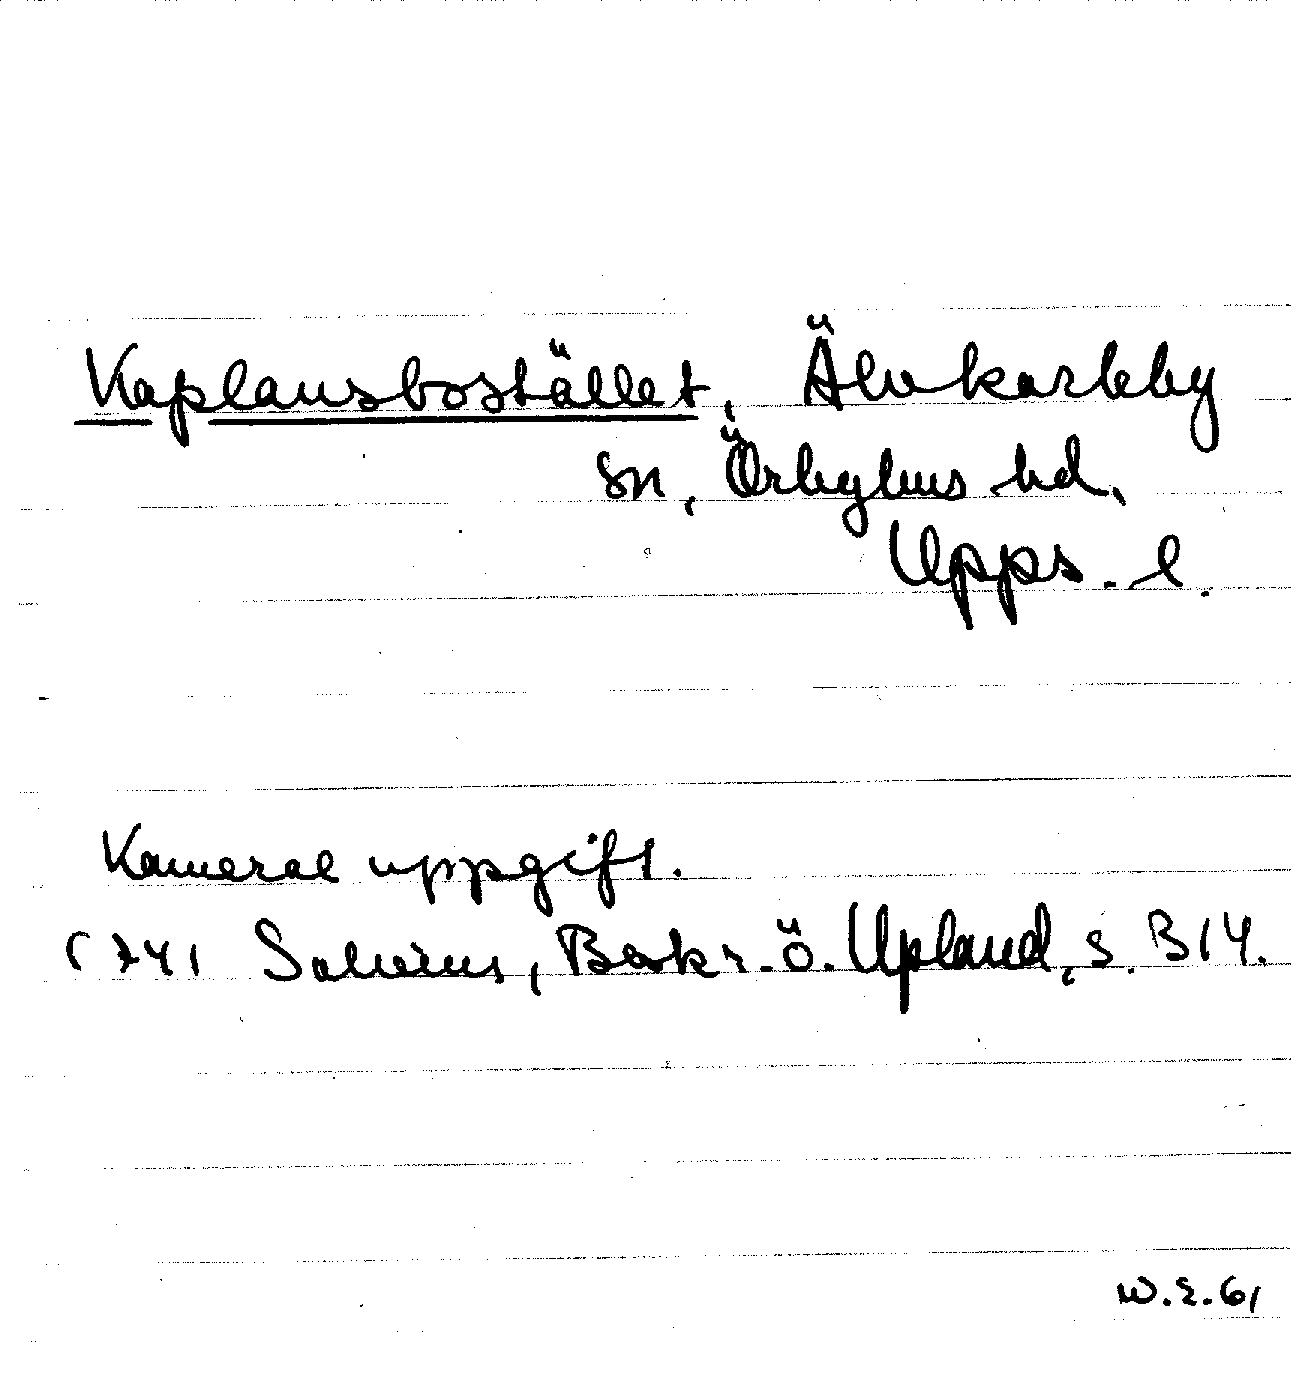 Kaplansbostället, Älvkarleby
sn, Örbyhus hd,
Upps. l.
Kameral uppgift.
1741 Salvius, Beskr. ö. Upland, s. 314.
W.E.61